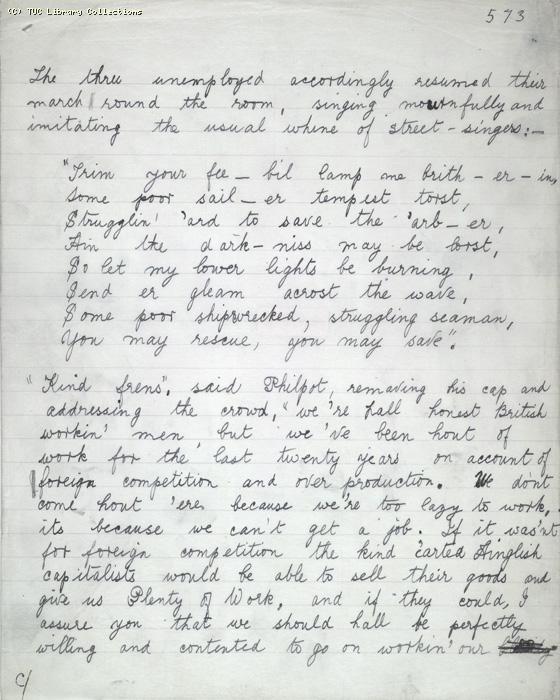 (C) TUC Library Collections
573
The three unemployed accordingly resumed their
march round the room, singing mournfully and
imitating the usual whine of street-singers:—
"Trim your fee-bil lamp me brith-er-in,
Some poor sail-er tempest torst,
Strugglin' 'ard to save the 'arb-er,
Hin the dark-niss may be lorst,
So let my lower lights be burning,
Send er gleam acrost the wave,
Some poor shipwrecked, struggling seaman,
You may rescue, you may save".
"Kind frens", said Philpot, removing his cap and
addressing the crowd, "we're hall honest British
workin' men but we've been hout of
work for the last twenty years on account of
foreign competition and over production. We don't
come hout 'ere because we're too lazy to work,
its because we can't get a job. If it wasn't
for foreign competition the kind 'earted Hinglish
capitalists would be able to sell their goods and
give us Plenty of Work, and if they could, I
assure you that we should hall be perfectly
willing and contented to go on workin' our
C/